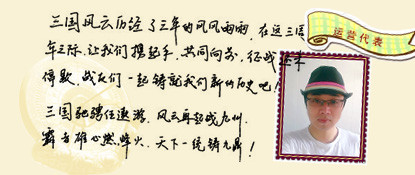 三国风云历经了三年的风风雨雨，在这三周
年之际，让我们携起手，共同向前，征战还未
停歇，战友们一起铸就我们新的历史吧！
三国驰骋任遨游，风云再起战九州，
霸者雄心燃烽火，天下一统铸九鼎！
运营代表